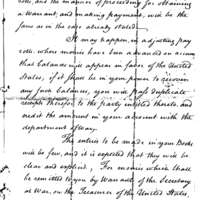 vds, and the manner of proceeding for obtaining
a Warrant, and making payment, will be the
same as in the case already stated.
It may happen, in adjusting pay
rolls, where monies have been advanced on account
that balances will appear in favor of the United
States, if it shall be in your power to receive
any such balances, you will pass duplicate
receipts therefor to the party entitled thereto, and
credit the amount in your account with the
department of War.
The entries to be made in your Books
will be few, and it is expected that they will be
clear and explicit, For monies which shall
be remitted to you by Warrants of the Secretary
at War, on the Treasurer of the United States,